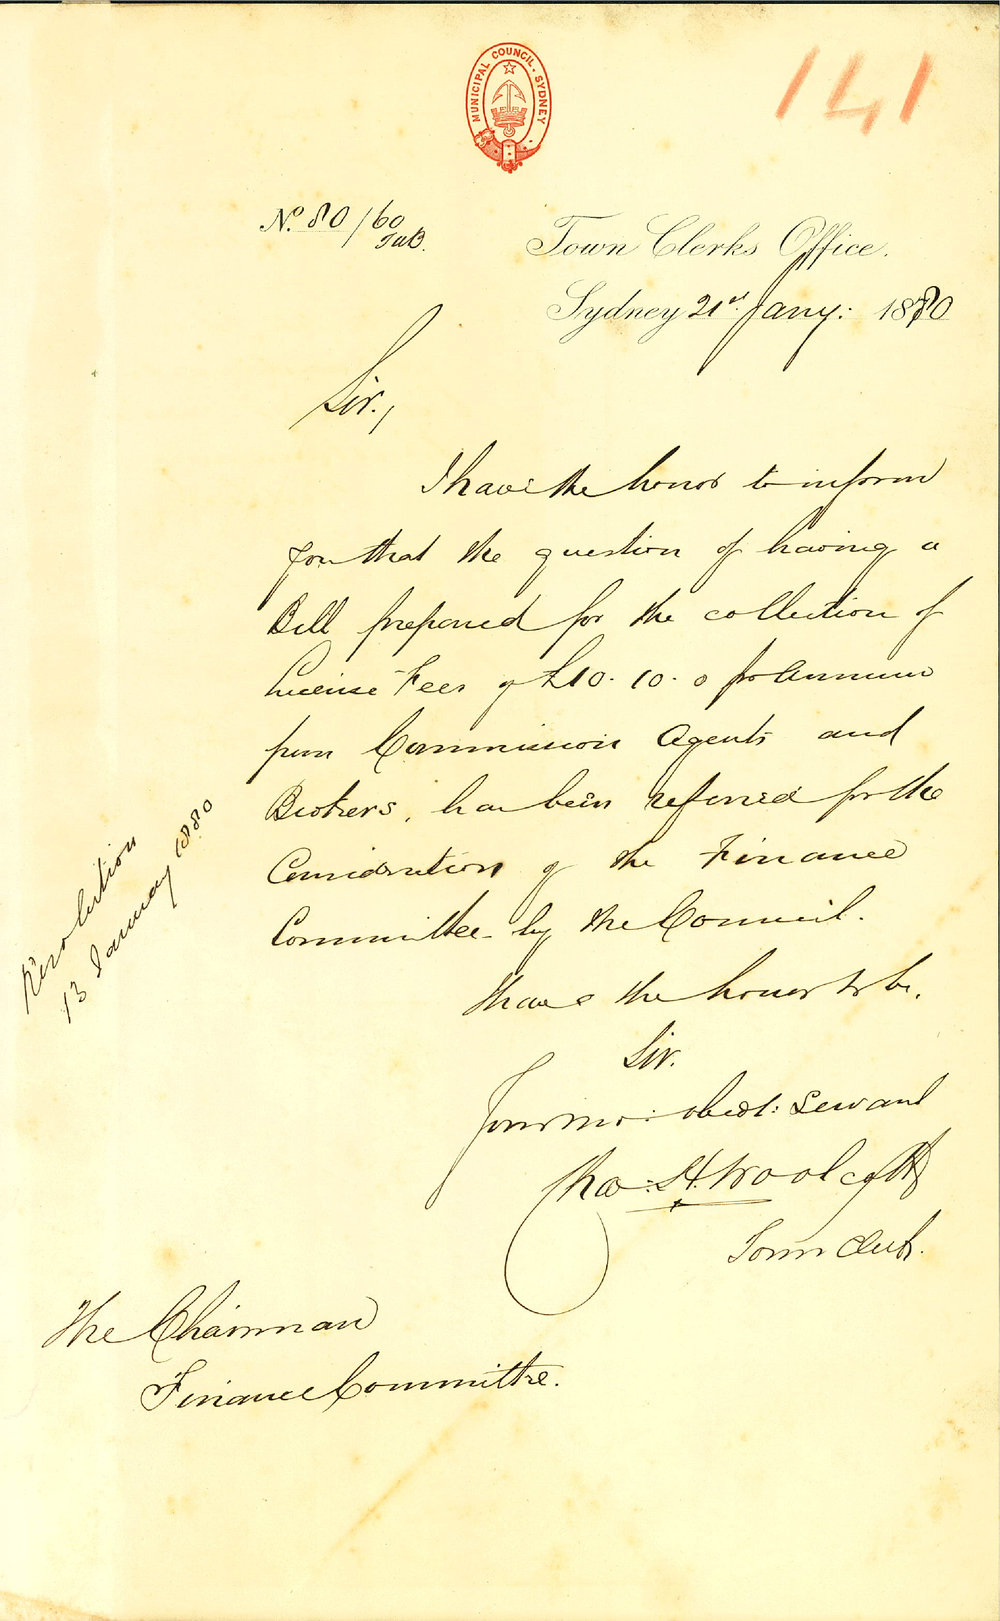 MUNICIPAL COUNCIL. SYDNEY
141
No. 80/60
Town Clerks Office.
Sydney 21st Jany: 1880
Sir,
I have the honor to inform
you that the question of having a
Bill prepared for the collection of
License Fees of £10. 10. 0 pr Annum
from Commission Agents and
Brokers, has been referred for the
Consideration of the Finance
Committee by the Council.
I have the honor to be,
Sir.
Your mo: obedt: Servant
Thos: H. Woolcott
Town Clerk.
The Chairman
Finance Committee.
Resolution
13 January 1880